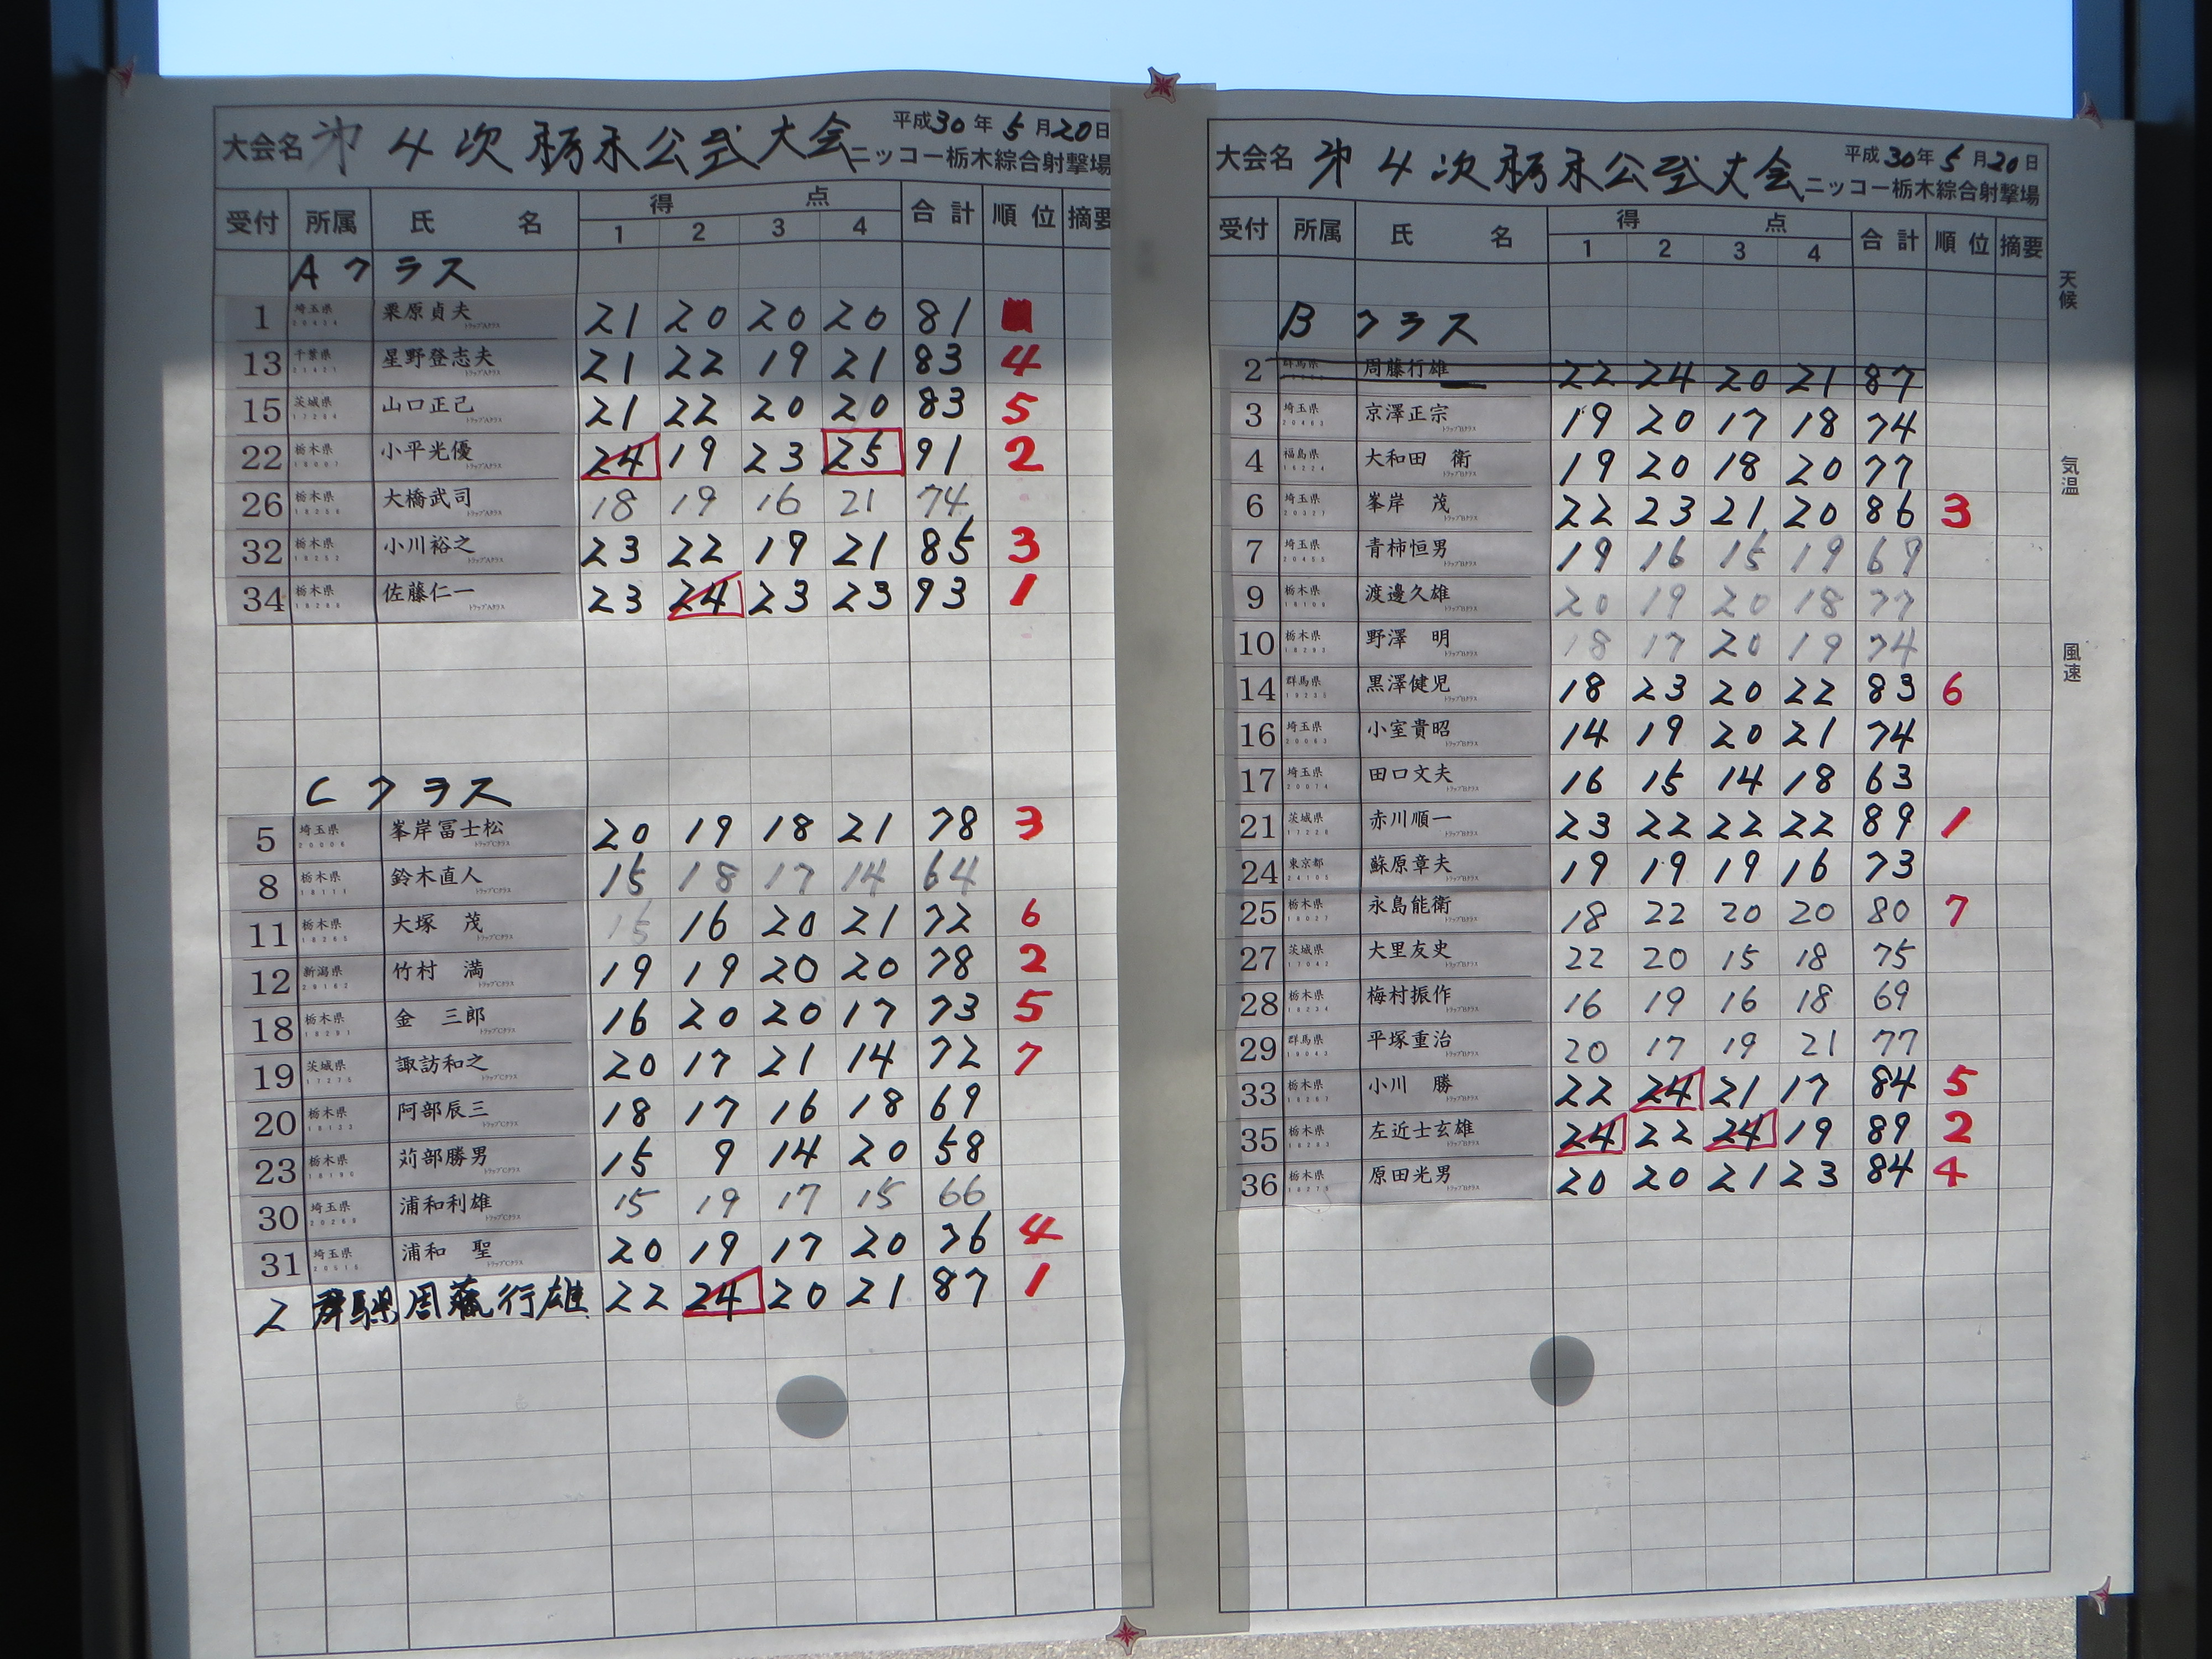 大会名 第4次栃木公式大会 平成30年5月20日
ニッコー栃木綜合射撃場
受付 所属 氏名 得点 合計 順位 摘要
1 2 3 4
Aクラス
1 埼玉県 栗原貞夫 21 20 20 20 81
13 千葉県 星野登志夫 21 22 19 21 83 4
15 茨城県 山口正己 21 22 20 20 83 5
22 栃木県 小平光優 24 19 23 25 91 2
26 栃木県 大橋武司 18 19 16 21 74
32 栃木県 小川裕之 23 22 19 21 85 3
34 栃木県 佐藤仁一 23 24 23 23 93 1
Cクラス
5 埼玉県 峯岸冨士松 20 19 18 21 78 3
8 栃木県 鈴木直人 15 18 17 14 64
11 栃木県 大塚 茂 15 16 20 21 72 6
12 新潟県 竹村 満 19 19 20 20 78 2
18 栃木県 金 三郎 16 20 20 17 73 5
19 茨城県 諏訪和之 20 17 21 14 72 7
20 栃木県 阿部辰三 18 17 16 18 69
23 栃木県 苅部勝男 15 9 14 20 58
30 埼玉県 浦和利雄 15 19 17 15 66
31 埼玉県 浦和 聖 20 19 17 20 76 4
2 群馬県 周藤行雄 22 24 20 21 87 1
大会名 第4次栃木公式大会 平成30年5月20日
ニッコー栃木綜合射撃場
受付 所属 氏名 得点 合計 順位 摘要
1 2 3 4
Bクラス
2 群馬県 周藤行雄 22 24 20 21 87
3 埼玉県 京澤正宗 19 20 17 18 74
4 福島県 大和田 衛 19 20 18 20 77
6 埼玉県 峯岸 茂 22 23 21 20 86 3
7 埼玉県 青柿恒男 19 16 15 19 69
9 栃木県 渡邊久雄 20 19 20 18 77
10 栃木県 野澤 明 18 17 20 19 74
14 群馬県 黒澤健児 18 23 20 22 83 6
16 埼玉県 小室貴昭 14 19 20 21 74
17 埼玉県 田口文夫 16 15 14 18 63
21 茨城県 赤川順一 23 22 22 22 89 1
24 東京都 蘇原章夫 19 19 19 16 73
25 栃木県 永島能衛 18 22 20 20 80 7
27 茨城県 大里友史 22 20 15 18 75
28 栃木県 梅村振作 16 19 16 18 69
29 群馬県 平塚重治 20 17 19 21 77
33 栃木県 小川 勝 22 24 21 17 84 5
35 栃木県 左近士玄雄 24 22 24 19 89 2
36 栃木県 原田光男 20 20 21 23 84 4
天候
気温
風速